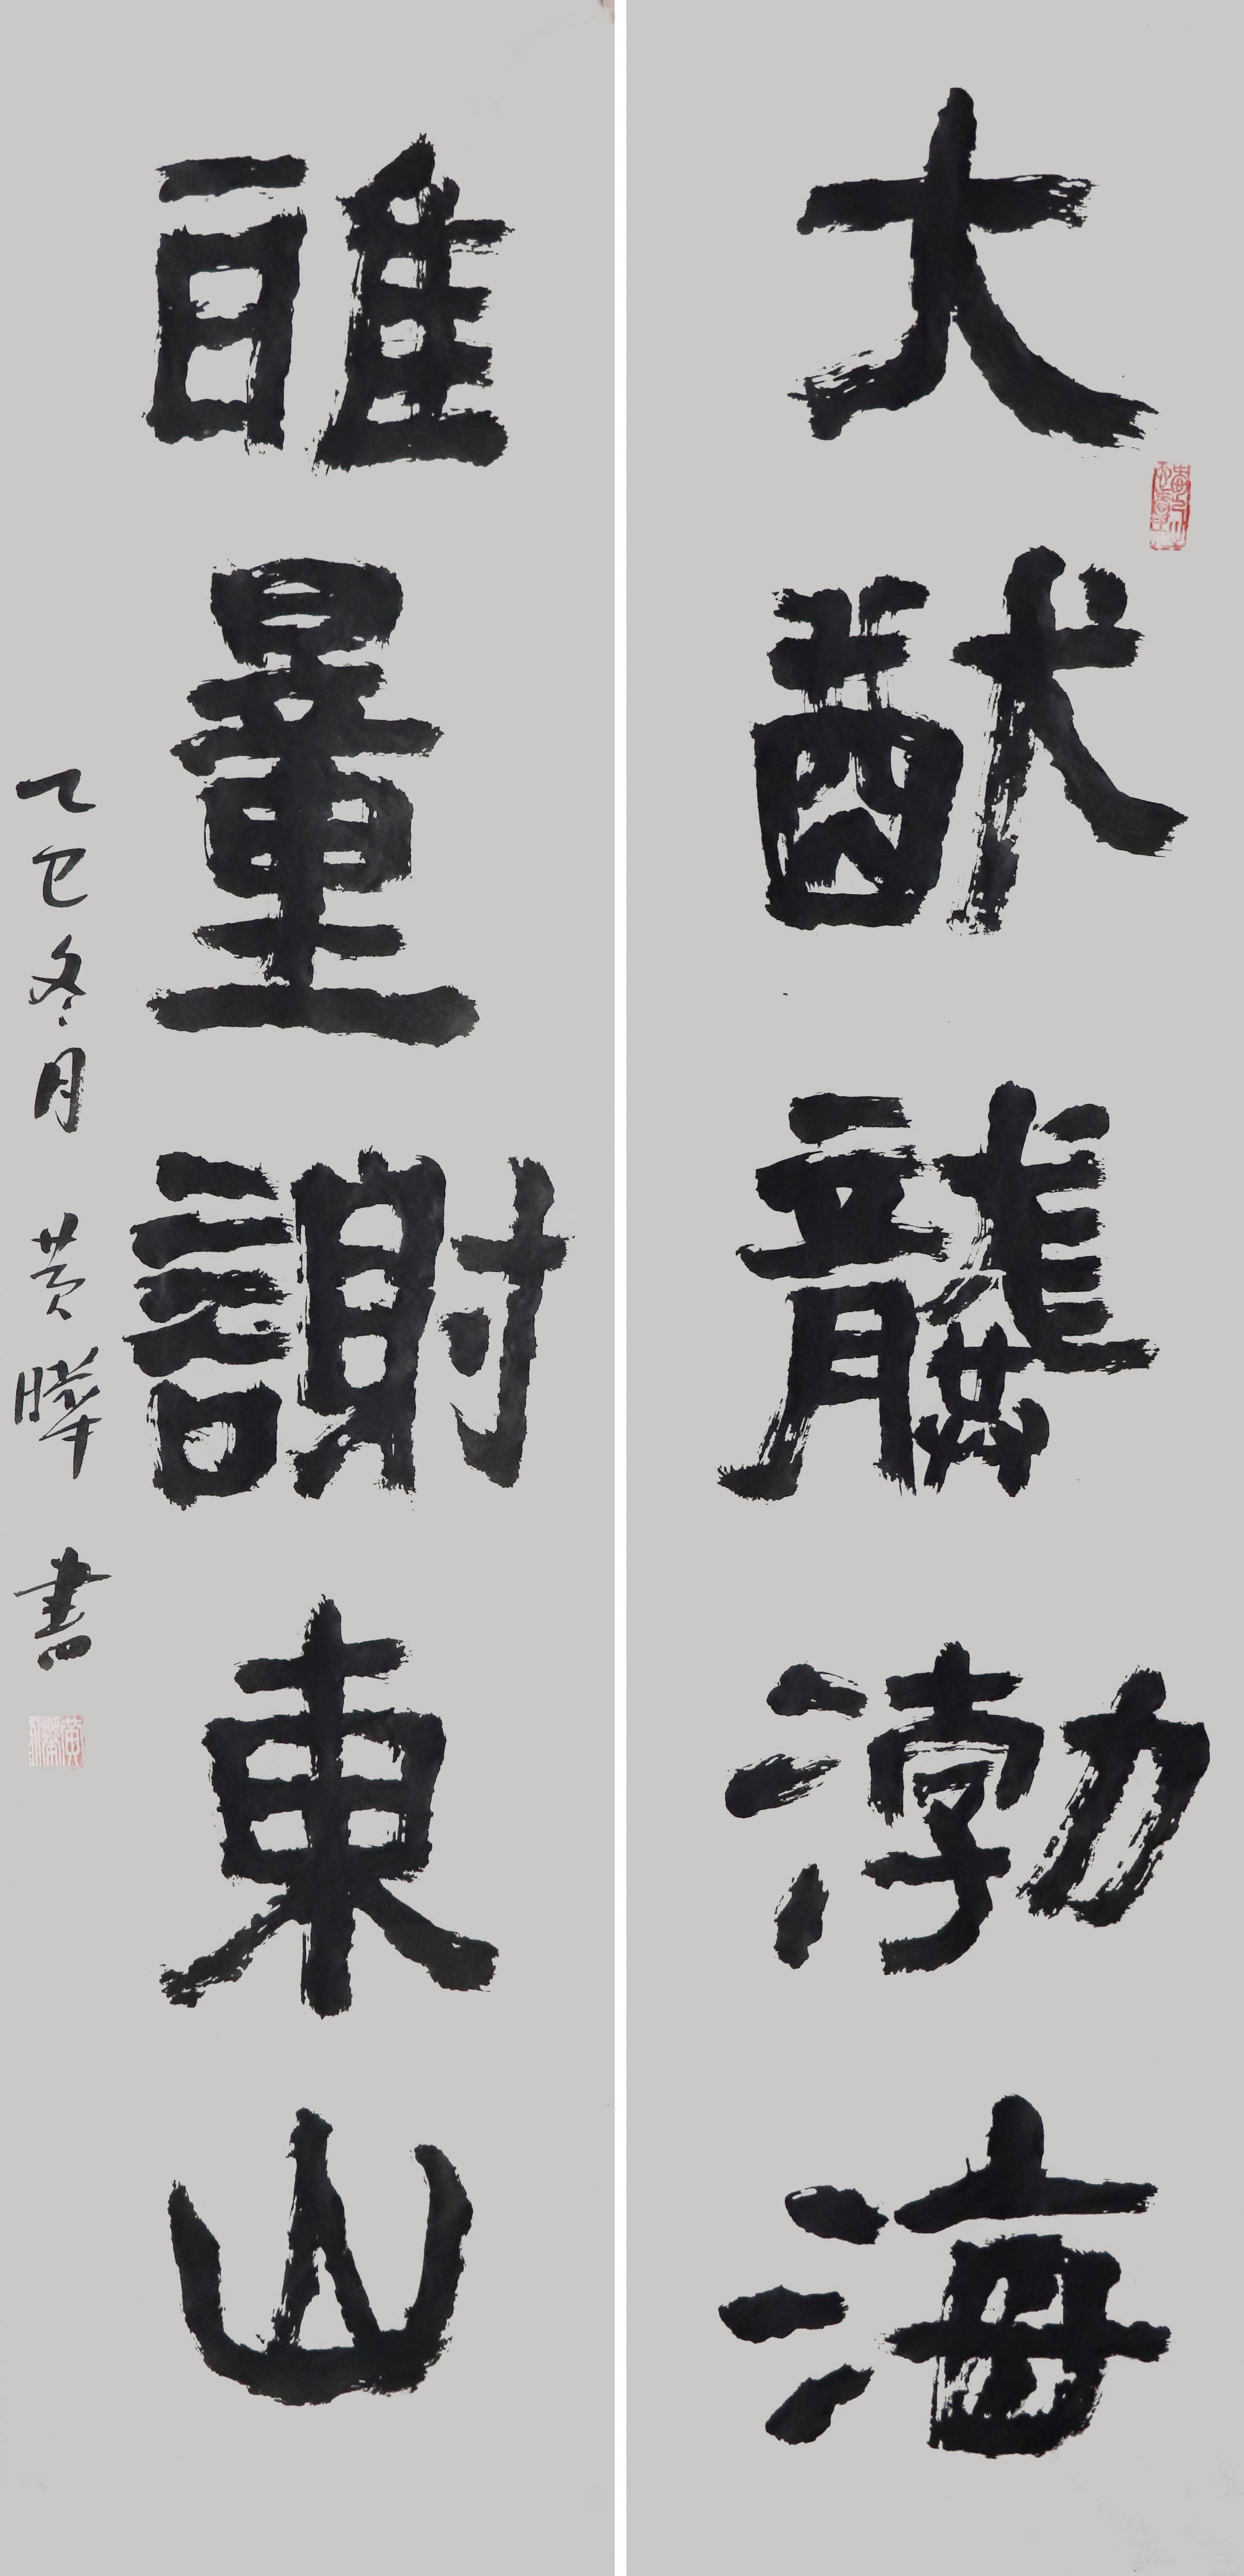 大猷龔渤海
雅量謝東山
乙巳冬月 黄曄 書